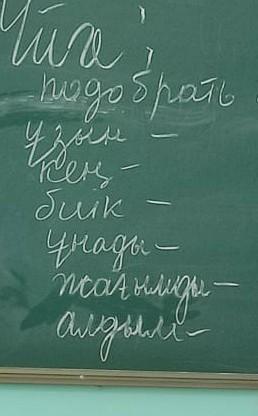 Үйге:
подобрать
ұзын -
кең -
биік -
ұнады -
жағымды -
алдым -